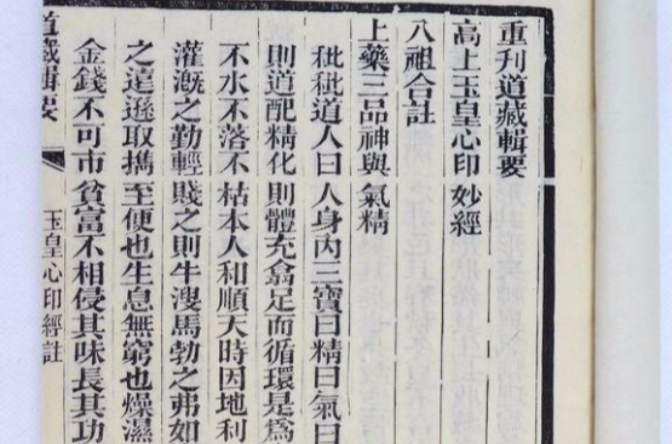 重刊道藏輯要
高上玉皇心印妙經
八祖合註
上藥三品神與氣精
秕秕道人曰人身內三寶曰精曰氣曰
則道配精化則體充翕足而循環是爲
不水不落不枯本人和順天時因地利
灌漑之勤輕賤之則牛溲馬勃之弗如
之遠遜取攜至便也生息無窮也燥濕
金錢不可市貧富不相侵其味長其功
道藏輯要
玉皇心印經註